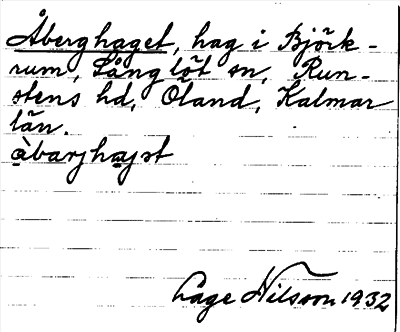 Åberghaget, hag i Björk-
rum, Långlöt sn, Run-
stens hd, Öland, Kalmar
län.
àbarjhajət
Lage Nilsson 1932